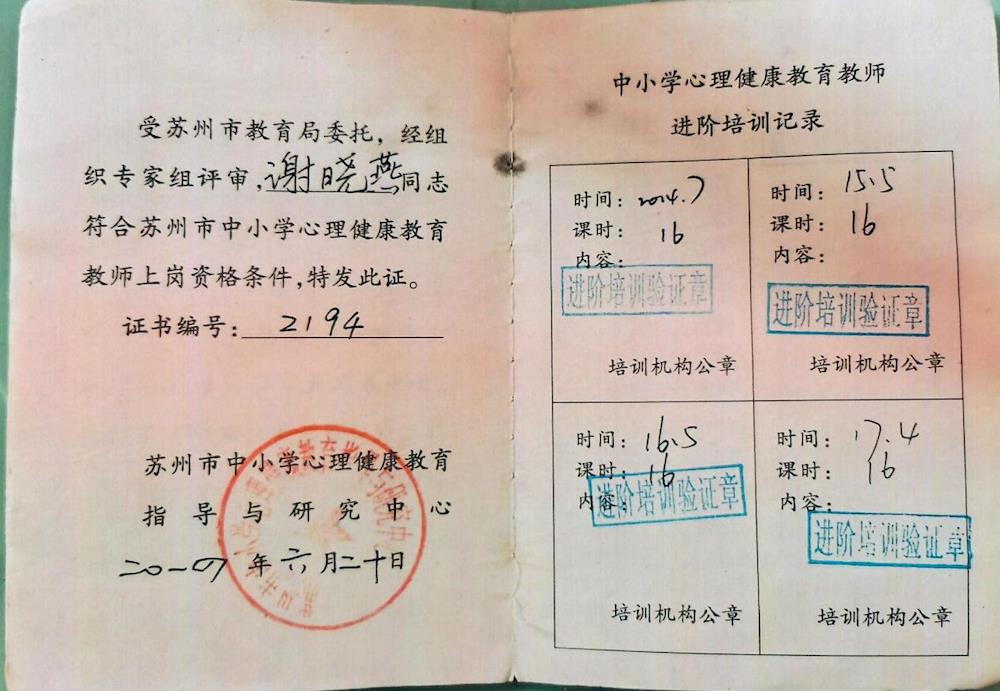 受苏州市教育局委托，经组
织专家组评审，谢晓燕同志
符合苏州市中小学心理健康教育
教师上岗资格条件，特发此证。
证书编号：2194
苏州市中小学心理健康教育
指导与研究中心
二〇一四年六月二十日
中小学心理健康教育教师
进阶培训记录
时间：2014.7
课时：16
内容：
进阶培训验证章
培训机构公章
时间：15.5
课时：16
内容：
进阶培训验证章
培训机构公章
时间：16.5
课时：16
内容：
进阶培训验证章
培训机构公章
时间：17.4
课时：16
内容：
进阶培训验证章
培训机构公章